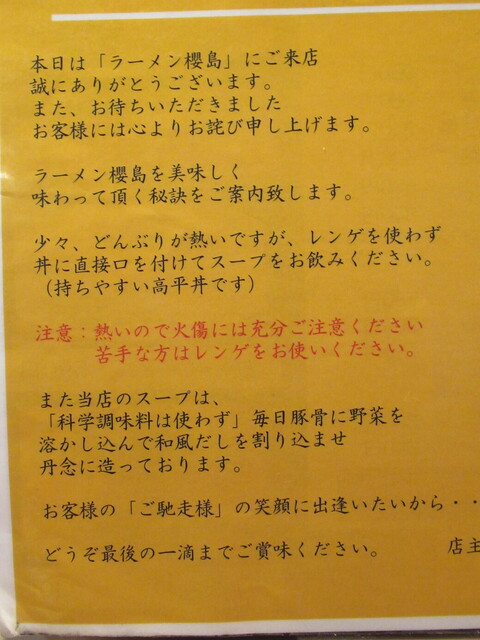 本日は「ラーメン櫻島」にご来店
誠にありがとうございます。
また、お待ちいただきました
お客様には心よりお詫び申し上げます。
ラーメン櫻島を美味しく
味わって頂く秘訣をご案内致します。
少々、どんぶりが熱いですが、レンゲを使わず
丼に直接口を付けてスープをお飲みください。
（持ちやすい高平丼です）
注意：熱いので火傷には充分ご注意ください
苦手な方はレンゲをお使いください。
また当店のスープは、
「科学調味料は使わず」毎日豚骨に野菜を
溶かし込んで和風だしを割り込ませ
丹念に造っております。
お客様の「ご馳走様」の笑顔に出逢いたいから・・
どうぞ最後の一滴までご賞味ください。 店主